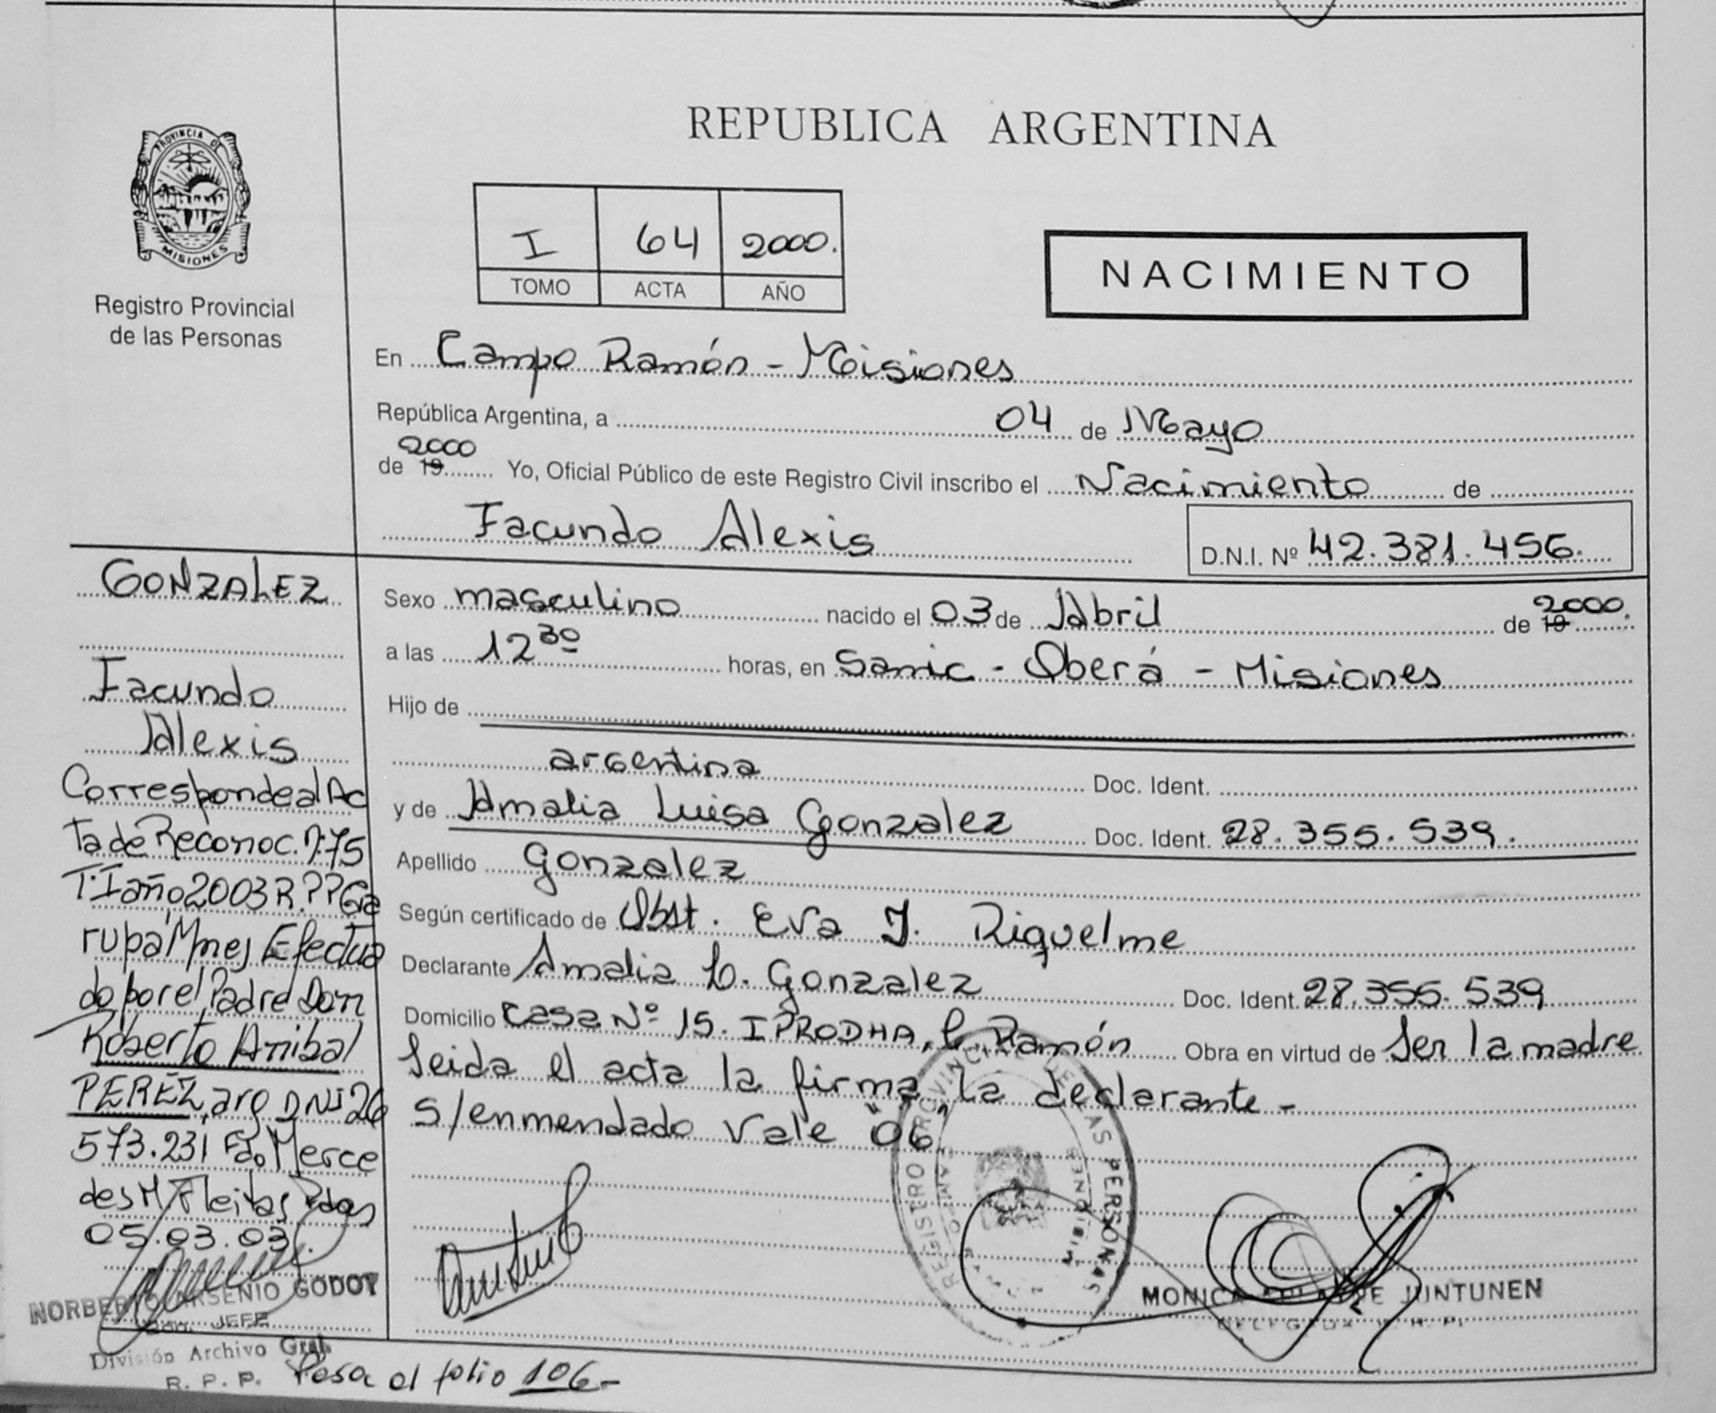 REPUBLICA ARGENTINA
PROVINCIA DE
MISIONES
Registro Provincial
de las Personas
I 64 2000.
TOMO ACTA AÑO
NACIMIENTO
En Campo Ramón - Misiones
República Argentina, a 04 de Mayo
de 19 2000 Yo, Oficial Público de este Registro Civil inscribo el Nacimiento de
Facundo Alexis
D.N.I. Nº 42.381.456.
Sexo masculino nacido el 03 de Abril de 19 2000.
a las 12 30 horas, en Samic - Oberá - Misiones
Hijo de
argentina Doc. Ident.
y de Amalia Luisa Gonzalez Doc. Ident. 28.355.539.
Apellido Gonzalez
Según certificado de Obst. Eva J. Riquelme
Declarante Amalia L. Gonzalez Doc. Ident. 28.355.539
Domicilio Casa Nº 15. IPRODHA, C. Ramón Obra en virtud de Ser la madre
Leida el acta la firma la declarante -
S/enmendado Vale "06"
GONZALEZ
Facundo
Alexis
Corresponde al Ac
ta de Reconoc. Nº 75
T: I año 2003 R.P.P Ga
rupá Mnes Efectua
do por el Padre Don
Roberto Anibal
PEREZ, arg DNI 26
573.231 Fdo Merce
des M. Fleitas Pdas
05.03.03.
NORBERTO ARSENIO GODOY
JEFE
División Archivo Gral.
R. P. P.
Pasa al folio 106-
REGISTRO PROVINCIAL DE LAS PERSONAS
MISIONES
MONICA JUNTUNEN